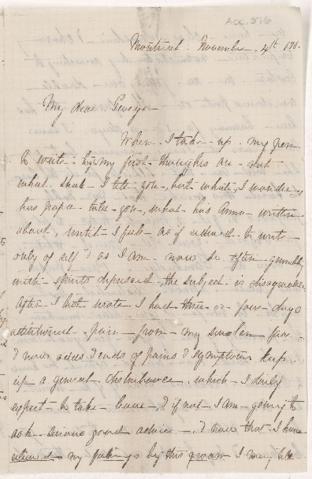 Acc. 576
Montreal. November 4th
My dear George
When I take up my pen
to write my first thoughts are not
what shall I tell you, but what, I wonder,
has papa told you, what has Anna written
about, until I feel as if used to write
only of self & as I am now so often gently
with spirits depressed the subject is disagreeable
After I last wrote I had three or four days
pain from my swollen face
& now aches & ends of pains & symptoms keep
up a general disturbance, which I daily
expect to take leave, & if not I am going to
ask good advice. I now that I have
my feelings by this groan I may be